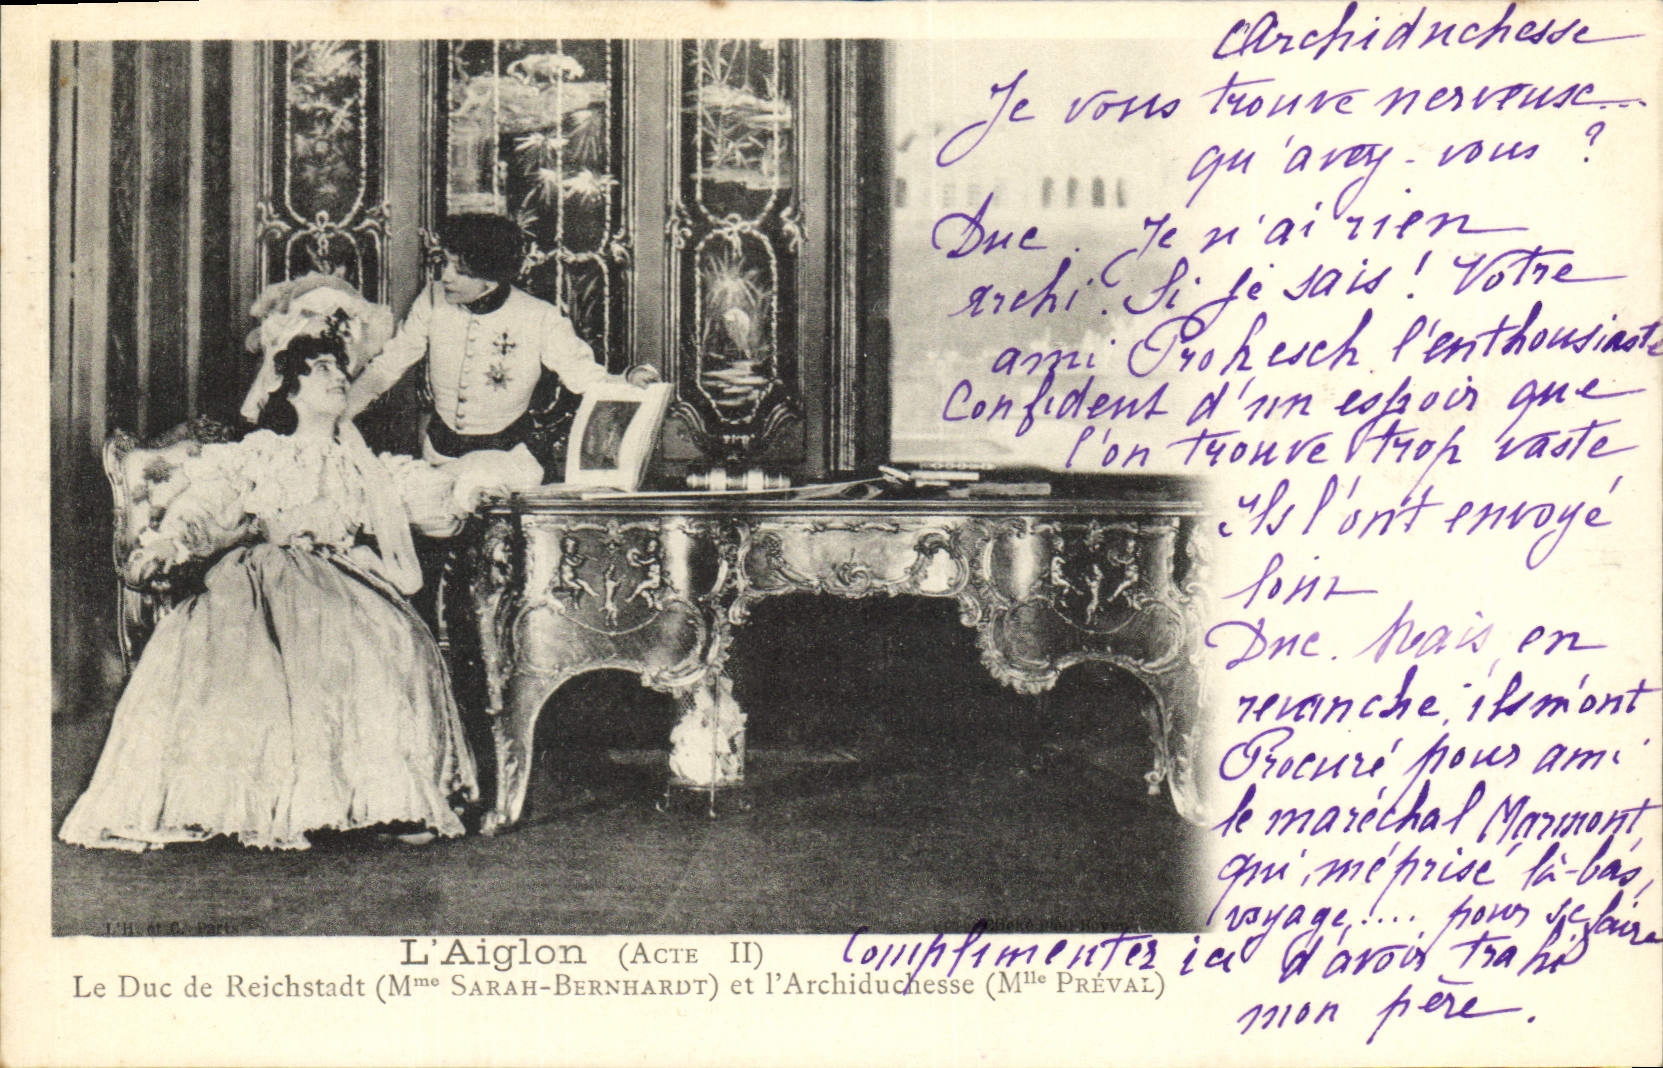 Archiduchesse
Je vous trouve nerveuse...
qu'avez-vous ?
Duc. Je n'ai rien
archi. Si je sais ! Votre
ami Prokesch l'enthousiaste
Confident d'un espoir que
l'on trouve trop vaste
Ils l'ont envoyé
loin
Duc. Mais, en
revanche, ils m'ont
Procuré pour ami
le maréchal Marmont,
qui, méprisé là-bas,
voyage,.... pour se faire
Complimenter ici d'avoir trahi
mon père.
L'H. et C. Paris
L'Aiglon (Acte II)
Le Duc de Reichstadt (Mme Sarah-Bernhardt) et l'Archiduchesse (Mlle Préval)